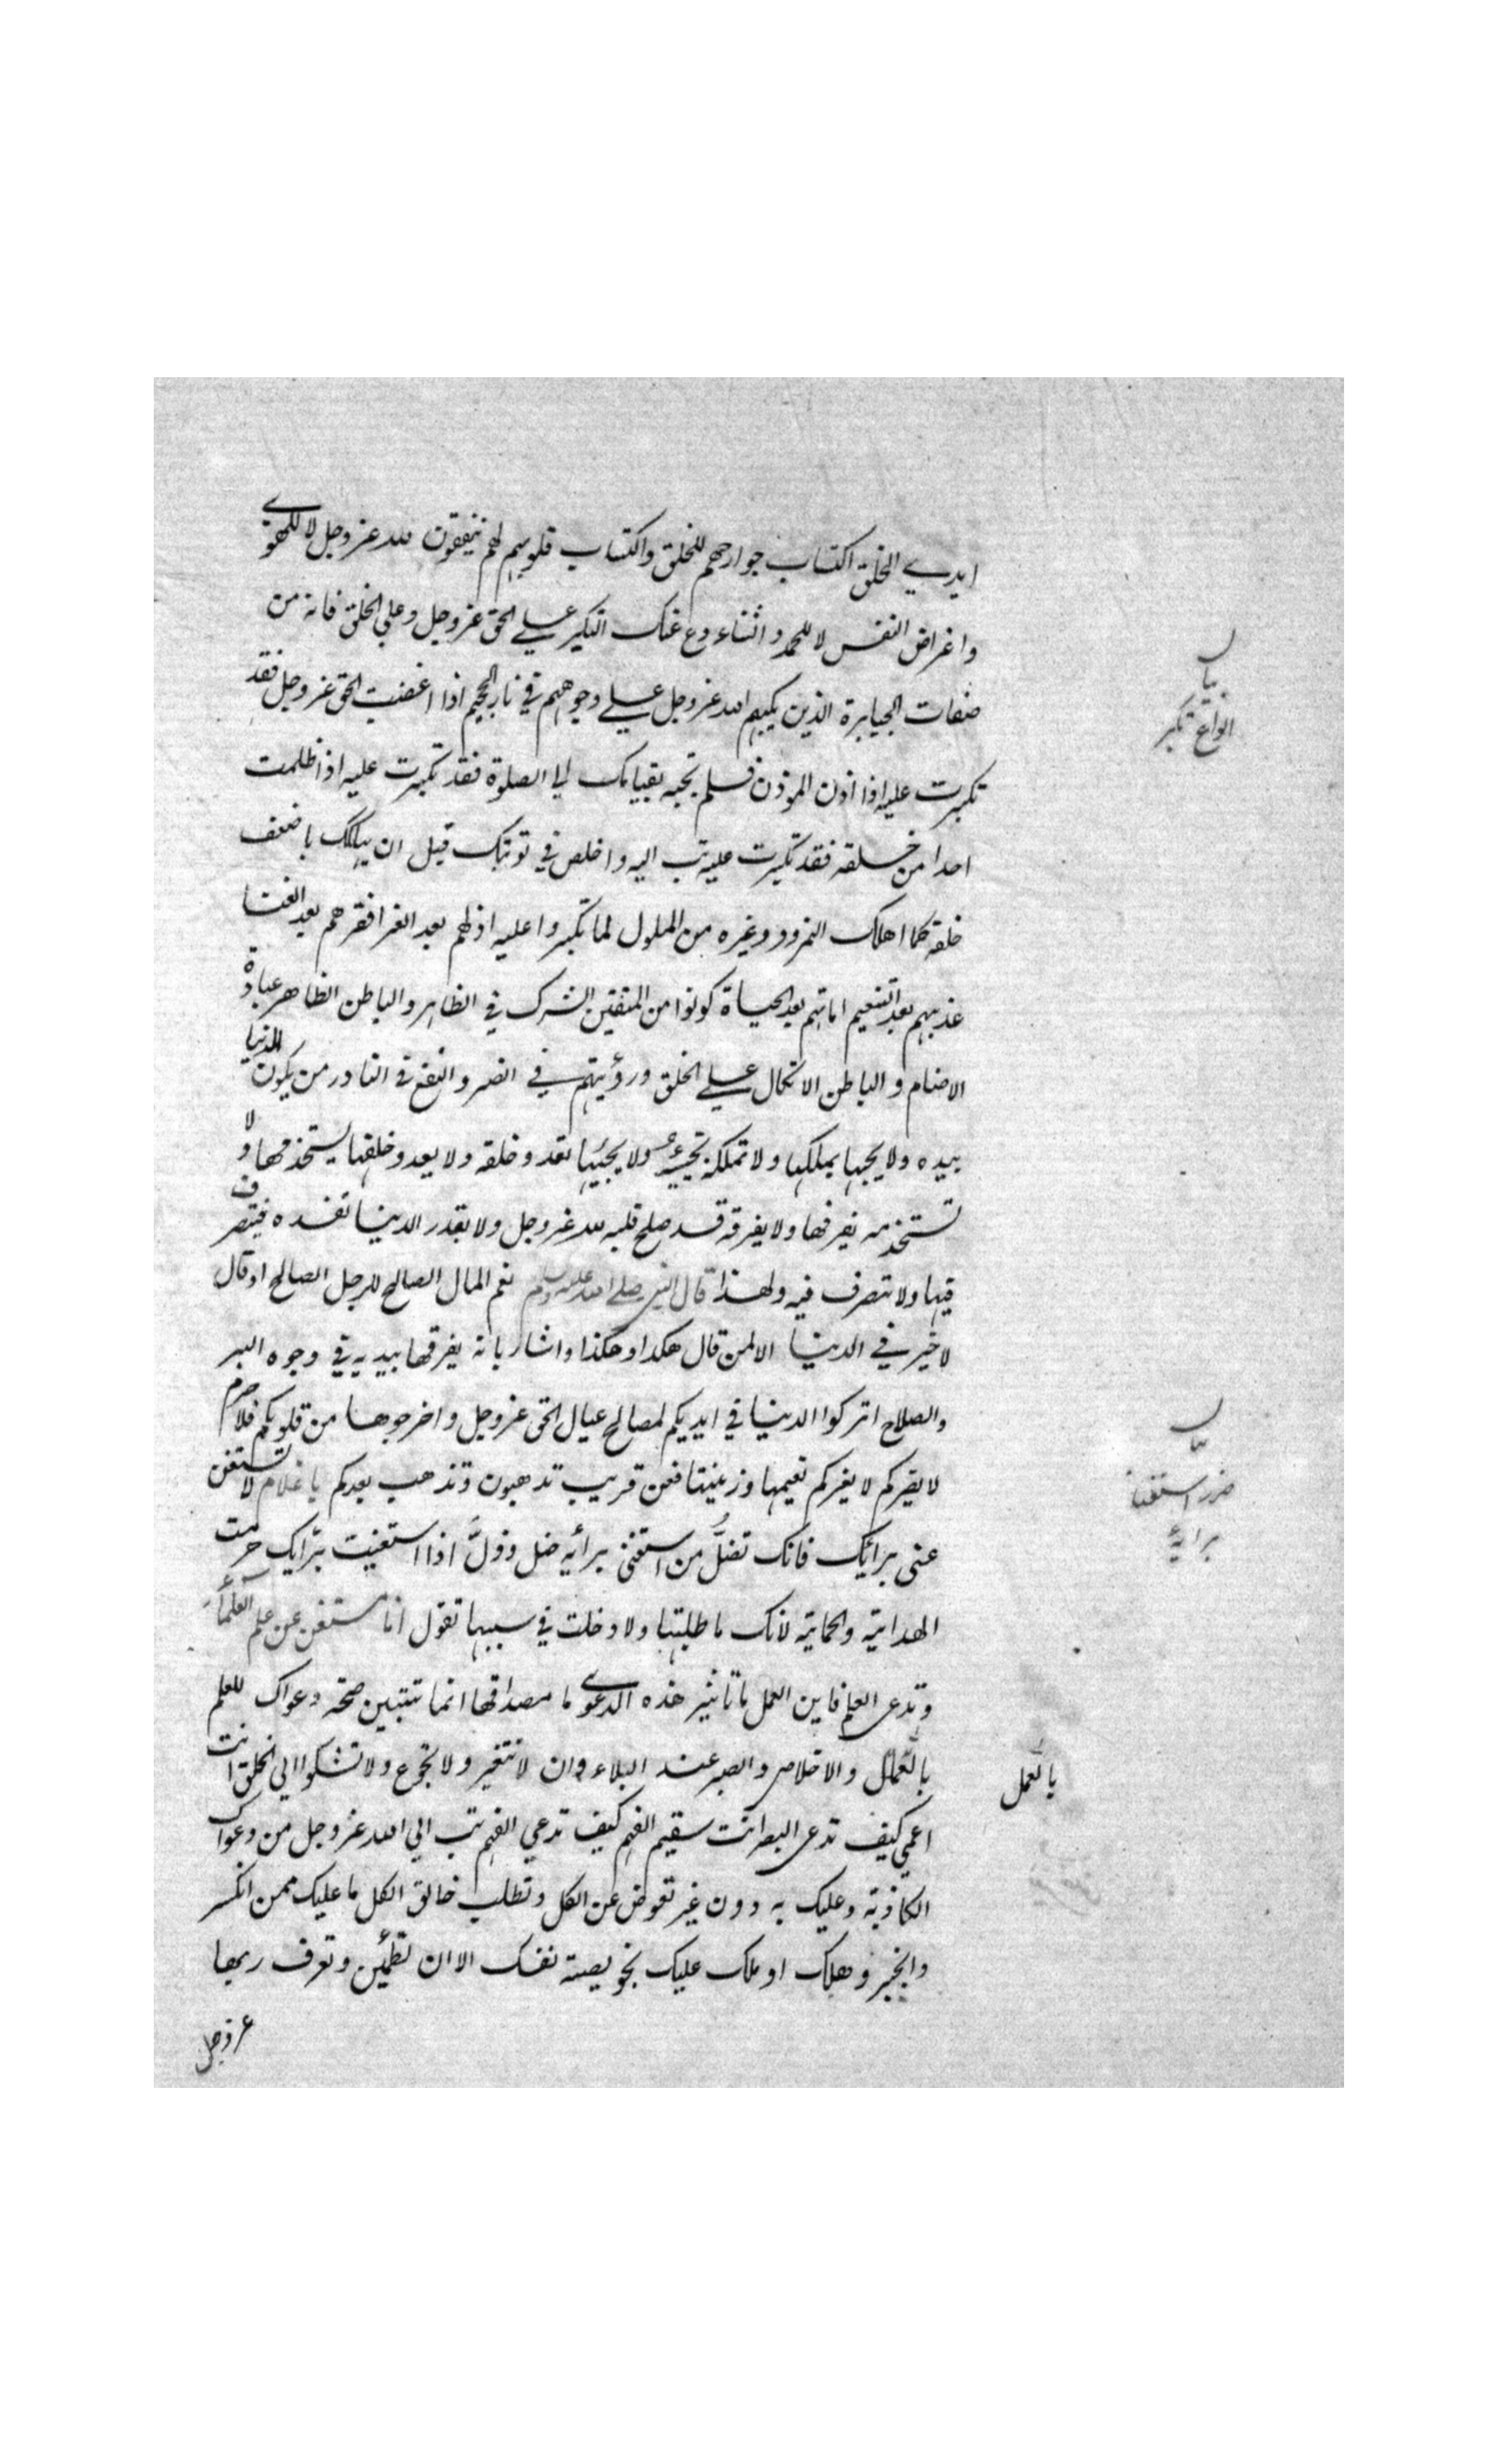 ايدي الخلق اكتساب جوارحهم للخلق واكتساب قلوبهم لهم ينفقون لله عز وجل لا للهوى
واغراض النفس لا للحمد والثناء دع عنك التكبر على الحق عز وجل وعلى الخلق فانه من
بيان
انواع تكبر
صفات الجبابرة الذين يكبهم الله عز وجل على وجوههم في نار الجحيم اذا اغضبت الحق عز وجل فقد
تكبرت عليه اذا اذن الموذن فلم تجبه بقيامك الى الصلوة فقد تكبرت عليه اذا ظلمت
احدا من خلقه فقد تكبرت عليه تب اليه واخلص في توبتك قبل ان يهلكك باضعف
خلقه كما اهلك النمرود وغيره من الملوك لما تكبروا عليه اذلهم بعد العز افقرهم بعد الغنا
عذبهم بعد التنعيم اماتهم بعد الحياة كونوا من المتقين الشرك في الظاهر والباطن الظاهر عبادة
الاصنام والباطن الاتكال على الخلق ورؤيتهم في الضر والنفع في النادر من يكون الدنيا
بيده ولا يحبها يملكها ولا تملكه تحبه ولا يحبها تعدو خلفه ولا يعدو خلفها يستخدمها ولا
تستخدمه يفرقها ولا يفرقه قد صلح قلبه لله عز وجل ولا يقدر الدنيا تفسده فيتصرف
فيها ولا تتصرف فيه ولهذا قال النبي صلى الله عليه وسلم نعم المال الصالح للرجل الصالح او قال
لا خير في الدنيا الا لمن قال هكذا وهكذا واشار بانه يفرقها بيديه في وجوه البر
والصلاح اتركوا الدنيا في ايديكم لمصالح عيال الحق عز وجل واخرجوها من قلوبكم فلا جرم
بيان
ضرر استغنا
برايه
لا يضركم لا يغركم نعيمها وزينتها فعن قريب تذهبون وتذهب بعدكم يا غلام لا تستغن
عني برائك فانك تضل من استغنى برأيه ضل وذل اذا استغنيت برايك حرمت
الهداية والحماية لانك ما طلبتها ولا دخلت في سببها تقول انا مستغن عن علم العلماء
وتدعى العلم فاين العمل ما تاثير هذه الدعوى ما مصداقها انما تتبين صحة دعواك للعلم
بالعمل والاخلاص والصبر عند البلاء وان لا تتغير ولا تجزع ولا تشكوا الى الخلق انت
بالعمل
اعمى كيف تدعى البصر انت سقيم الفهم كيف تدعى الفهم تب الى الله عز وجل من دعواك
الكاذبة وعليك به دون غير تعرض عن الكل وتطلب خالق الكل ما عليك ممن انكسر
وانجبر وهلك او ملك عليك بخويصة نفسك الا ان تطمئن وتعرف ربها
عز وجل